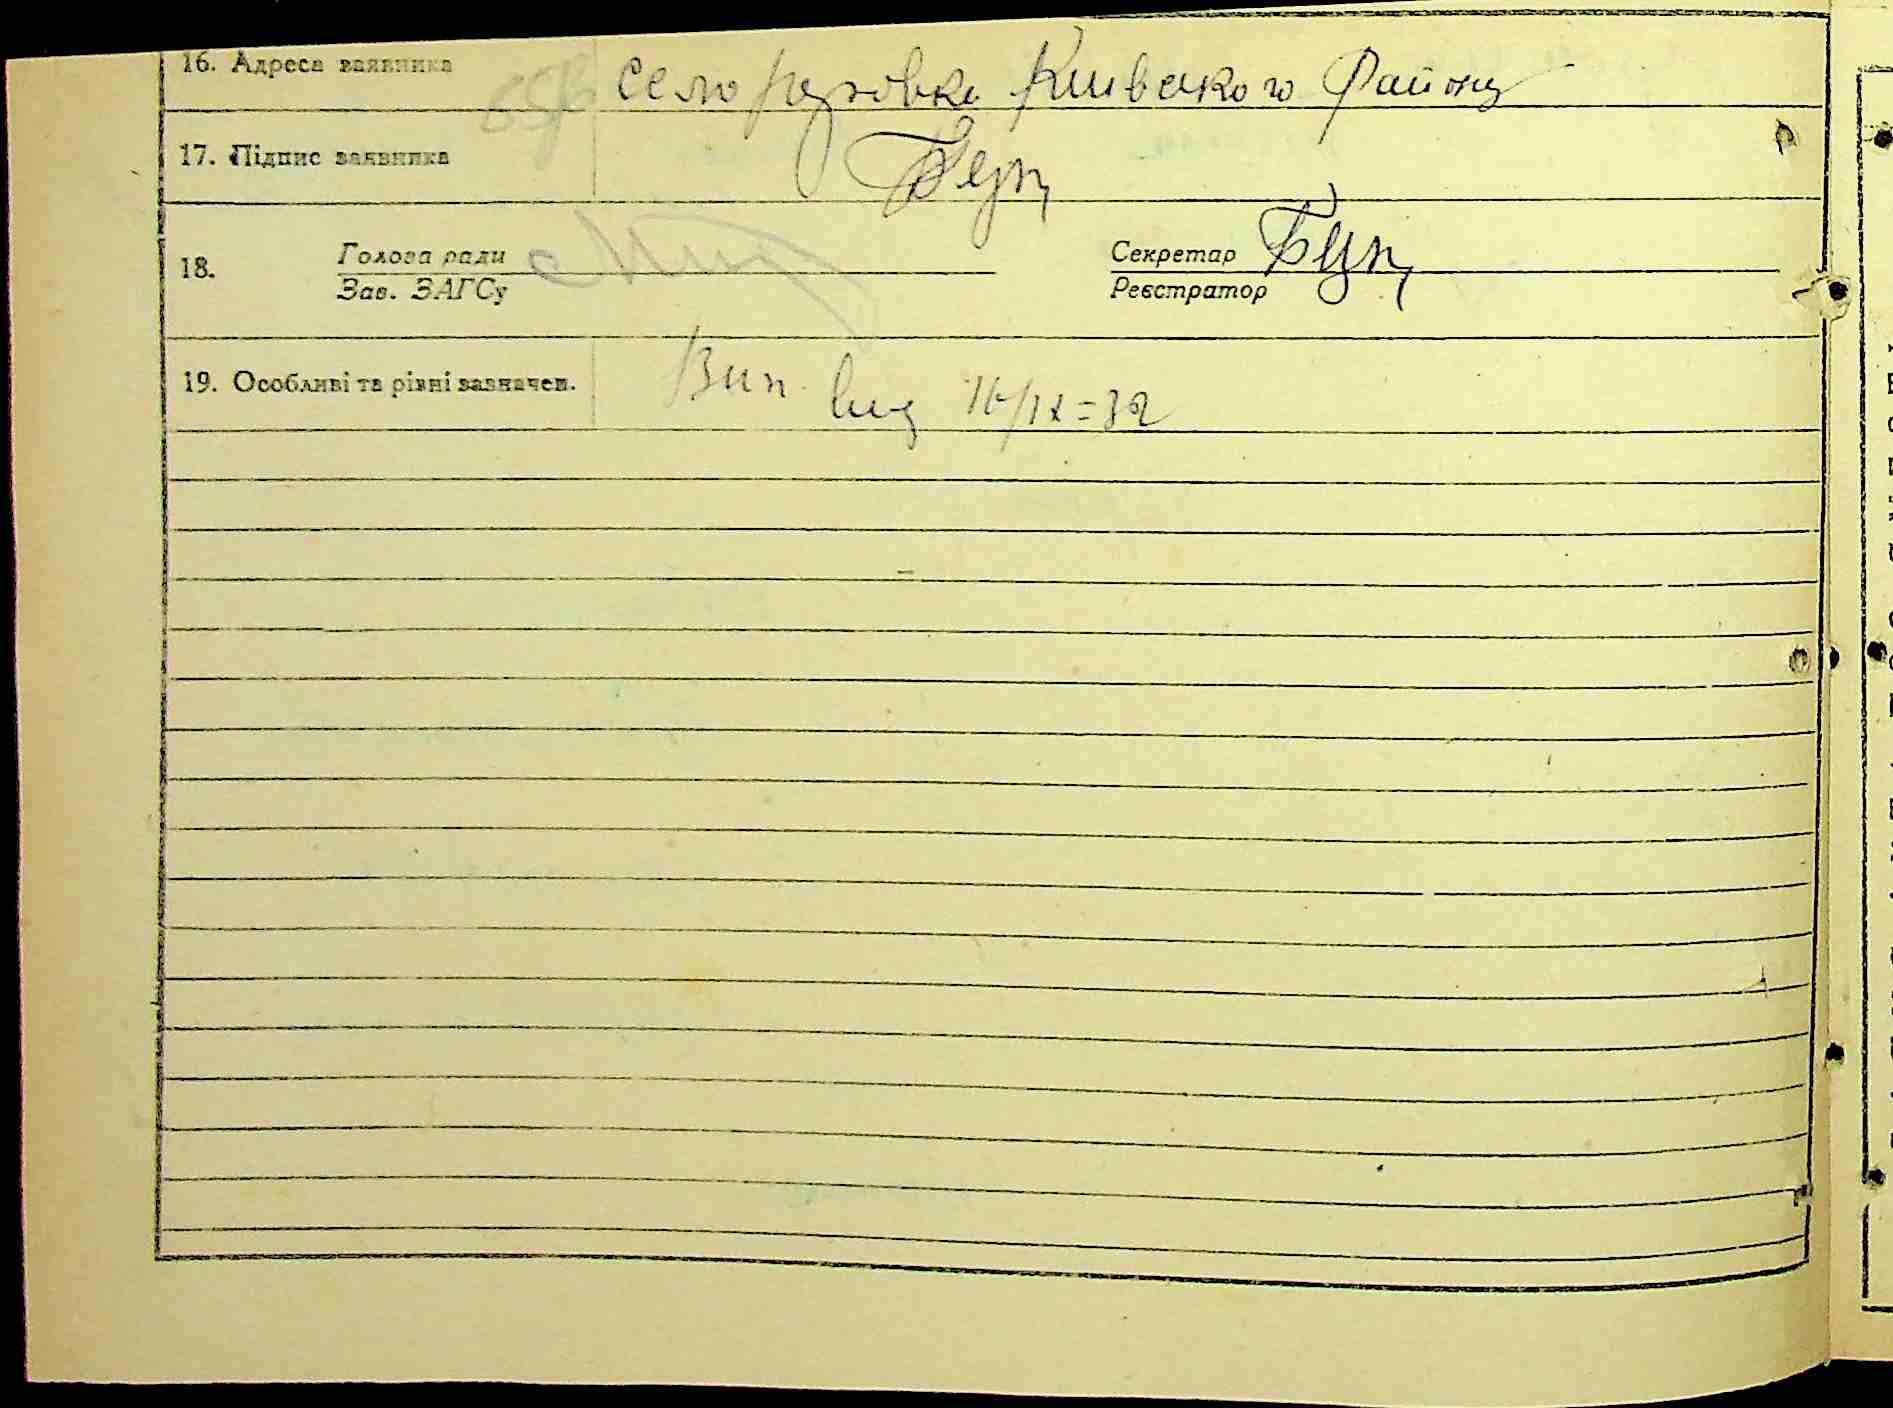 16. Адреса заявника село Киівского Району
17. Підпис заявника Буц
18. Голова ради Секретар Буц
Зав. ЗАГСу Реєстратор
19. Особливі та різні зазначен. Вип. вид 16/IX=32